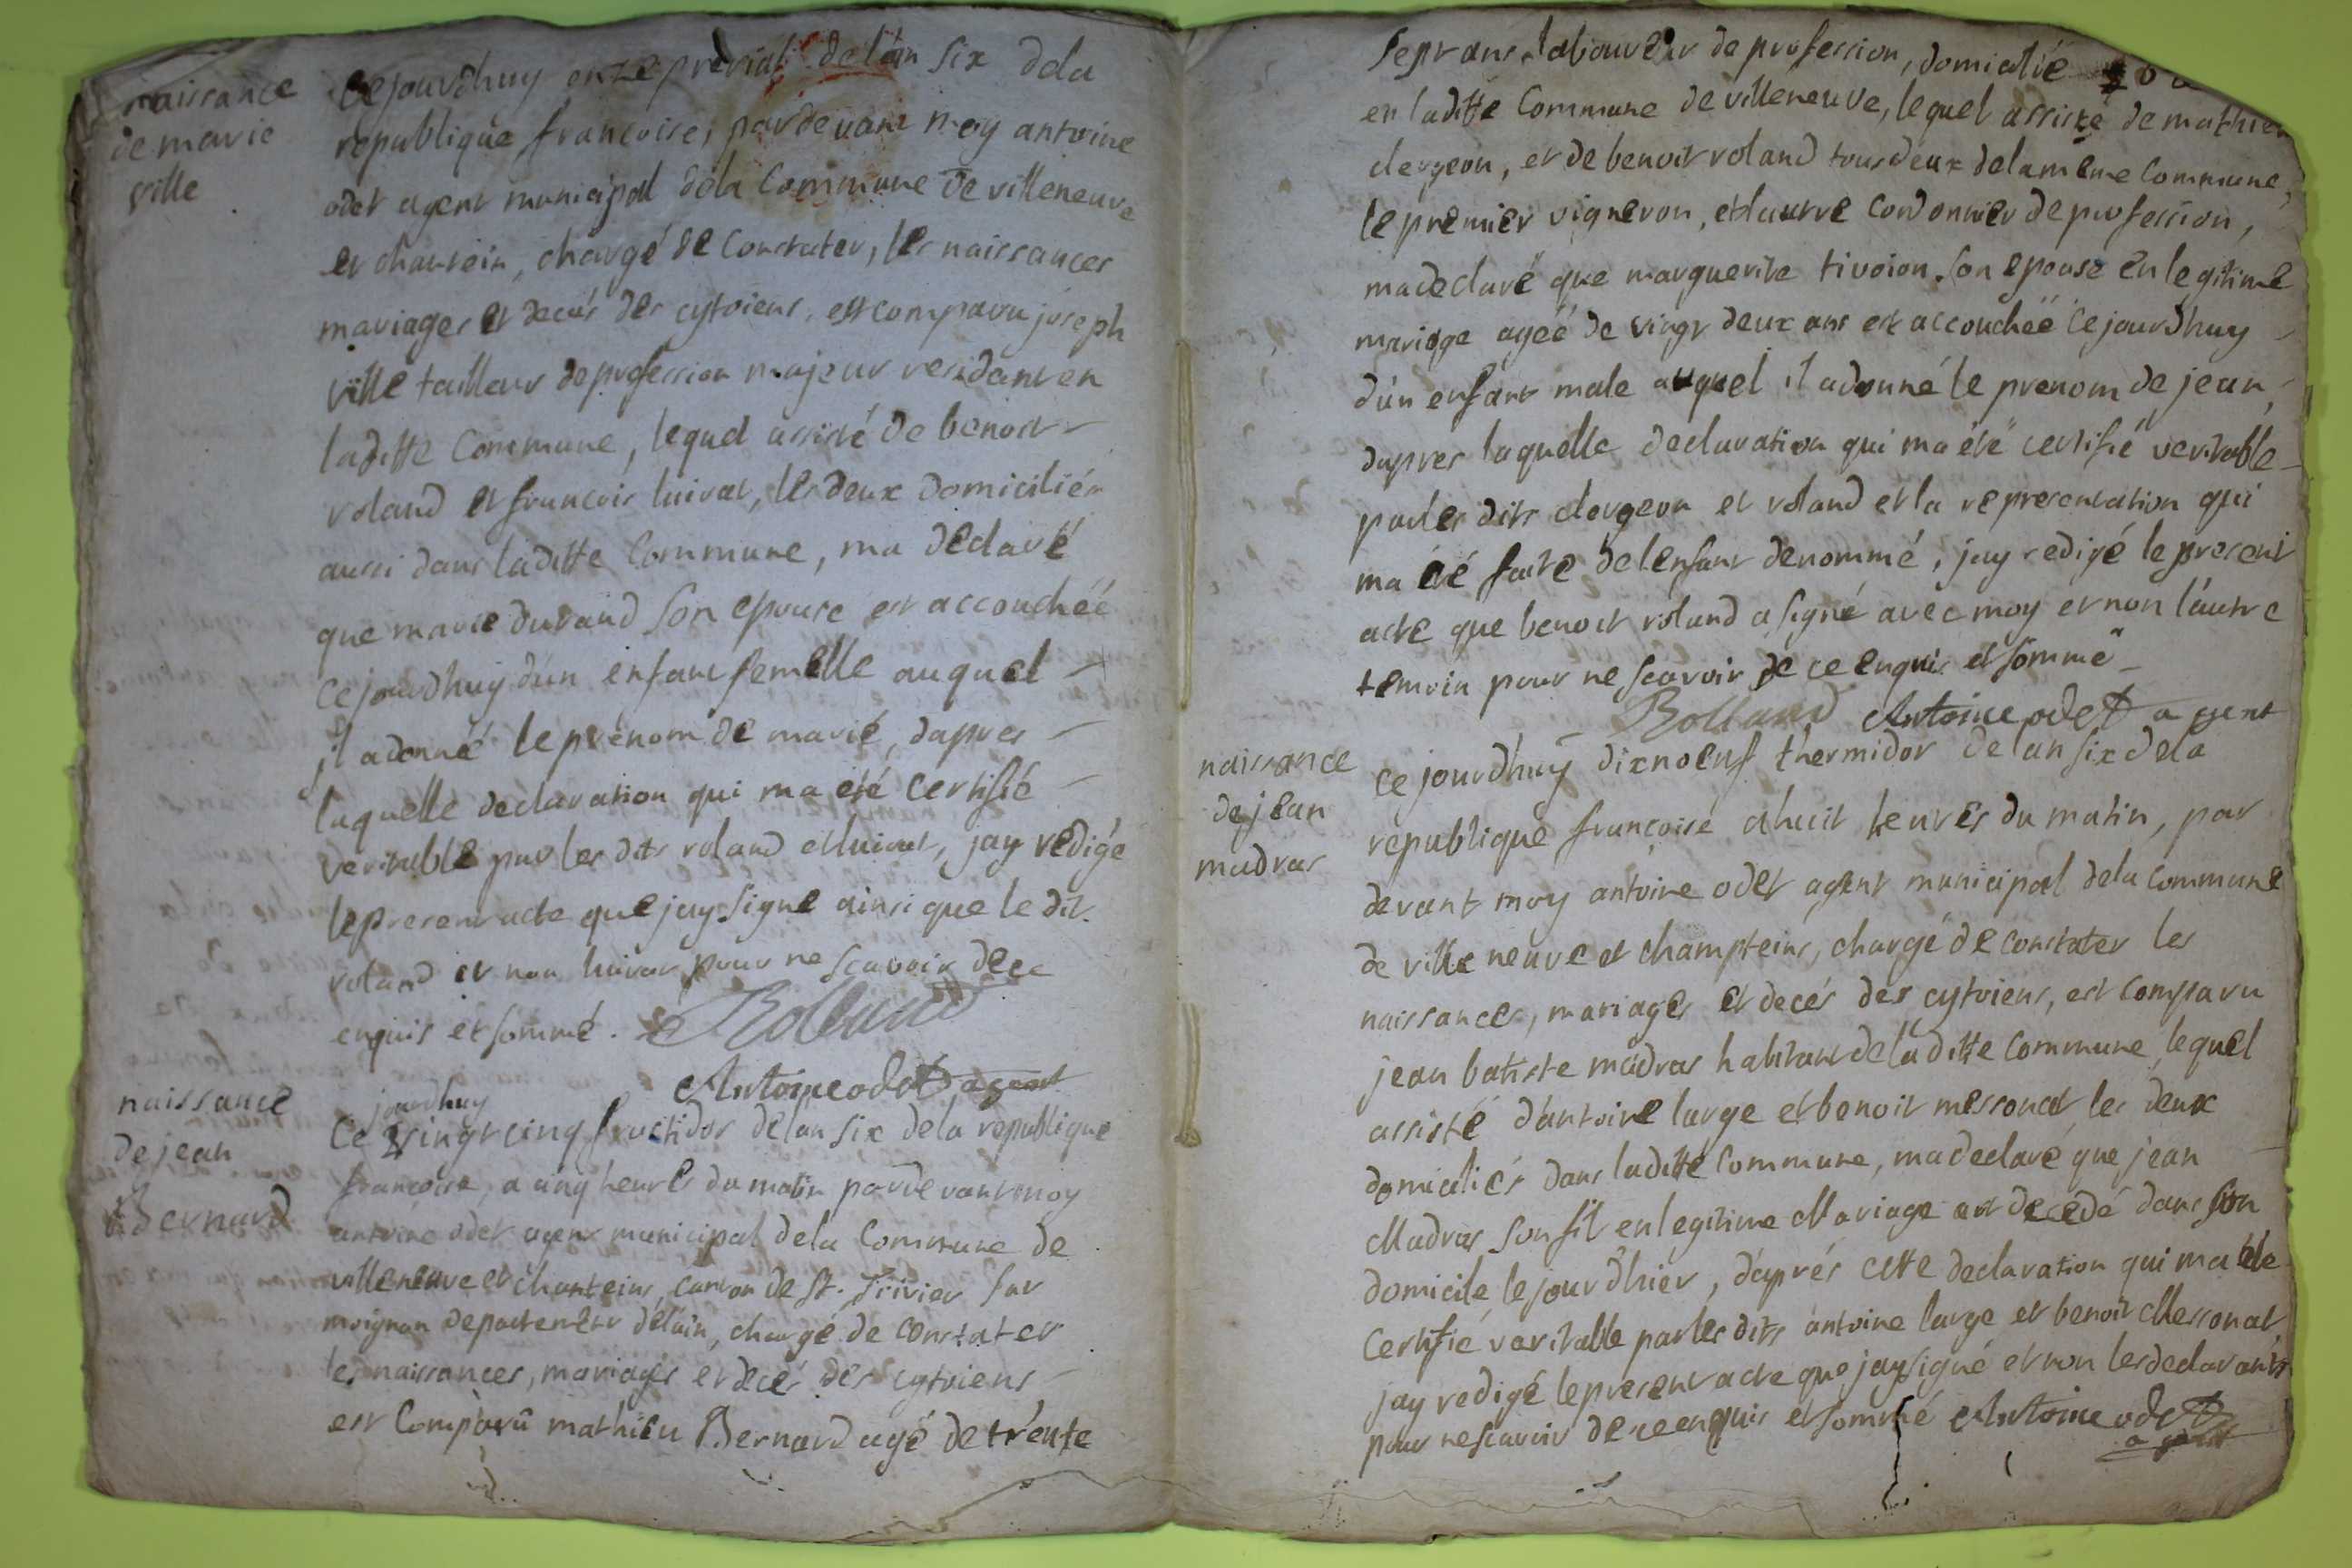 naissance
de marie
ville
Cejourdhuy onze prerial de lan six dela
republique francoise, pardevant moy antoine
odet agent municipal dela Commune de villeneuve
et chantein, chargé de Constater, les naissances
mariages et decés des cytoiens, est comparu joseph
ville tailleur de profession majeur residant en
laditte Commune, lequel assisté de benoit
roland et francois luivat, les deux domiciliés
aussi dans laditte Commune, ma declaré
que marie durand son epouse est accouchéé
Cejourdhuy dun enfant femelle auquel
il adonné le prénom de marie, dapres
laquelle declaration qui ma eté certifié
veritable par les dits roland et luivat, jay redigé
lepresent acte que jay signe ainsi que le dit
roland et non luivat pour ne scavoir dece
enquis et sommé. Rolland
Antoine odet agent
naissance
de jean
Bernard
jourdhuy
Ce vingt cinq fructidor de lan six dela republique
francoise, a cinq heures du matin pardevant moy
antoine odet agent municipal dela Commune de
villeneuve et chanteins, canton de St. Trivier sur
moignan departement de lain, chargé de constater
les naissances, mariages et decés des cytoiens
est Comparu mathieu Bernard agé de trente
sept ans laboureur de profession, domicilié
en laditte Commune de villeneuve, lequel assisté de mathieu
clergeon, et de benoit roland tous deux dela même Commune,
le premier vigneron, et lautre cordonnier de profession,
ma declaré que marguerite tivoion son epouse en legitime
mariage agéé de vingt deux ans est accouchéé Cejourdhuy
dún enfant male auquel il adonné le prenom de jean,
dapres laquelle declaration qui ma été certifié veritable
par les dits clergeon et roland et la representation qui
ma été faite de lenfant denommé, jay redigé le present
acte que benoit roland a signé avec moy et non láutre
temoin pour ne scavoir de ce enquis et sommé
Rolland Antoine odet agent
naissance
de jean
madras
Ce jourdhuy dixnoeuf thermidor de lan six dela
republique francoise ahuit heures du matin, par
devant moy antoine odet agent municipal dela commune
de ville neuve et champteins, chargé de constater les
naissances, mariages et decés des cytoiens, est comparu
jean batiste madras habitant de laditte Commune lequel
assisté dántoine large et benoit messonat les deux
domiciliés dans laditte Commune, ma declaré que jean
Madras son fil en legitime Mariage est decedé dans son
domicile le jour dhier, dáprés cette declaration qui ma été
Certifié veritable par les dits antoine large et benoit Messonat
jay redigé lepresent acte que jay signé et non les declarants
pour ne scavoir de ce enquis et sommé Antoine odet
agent